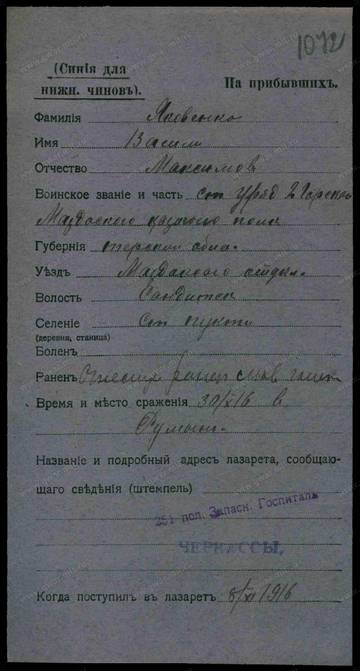 1072
(Синія для нижн. чиновъ).
На прибывшихъ.
Фамилія Яковенко
Имя Василий
Отчество Максимов
Воинское званіе и часть ст Уряд 2 Горско
Моздокского полка
Губернія терской обла.
Уѣздъ Моздокского отдѣл.
Волость
Селеніе ст
(деревня, станица)
Боленъ
Раненъ
Время и мѣсто сраженія 30/X 16 в
Румын.
Названіе и подробный адресъ лазарета, сообщаю-
щаго свѣдѣнія (штемпель)
251 пол. Запасн. Госпиталь
ЧЕРКАССЫ,
Когда поступилъ въ лазаретъ 8/XI 1916